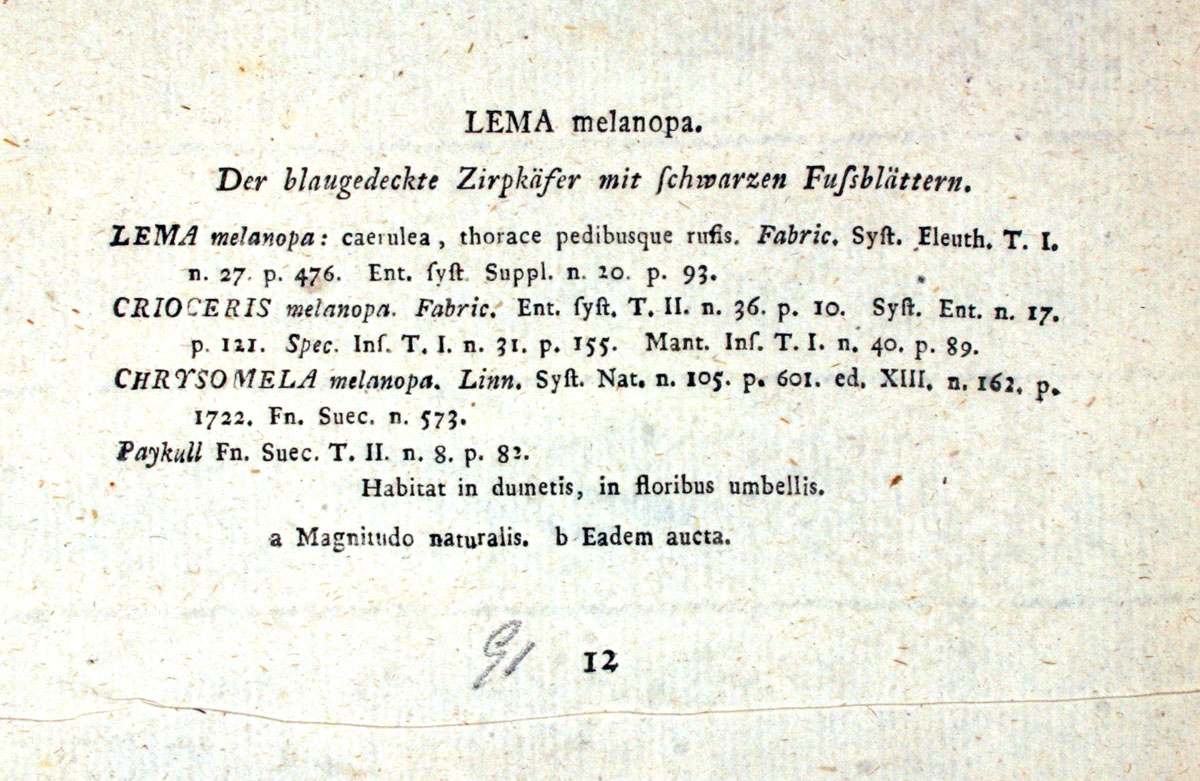 LEMA melanopa.
Der blaugedeckte Zirpkäfer mit ſchwarzen Fuſsblättern.
LEMA melanopa: caerulea, thorace pedibusque rufis. Fabric. Syſt. Eleuth. T. I.
n. 27. p. 476. Ent. ſyſt. Suppl. n. 20. p. 93.
CRIOCERIS melanopa. Fabric. Ent. ſyſt. T. II. n. 36. p. 10. Syſt. Ent. n. 17.
p. 121. Spec. Inſ. T. I. n. 31. p. 155. Mant. Inſ. T. I. n. 40. p. 89.
CHRYSOMELA melanopa. Linn. Syſt. Nat. n. 105. p. 601. ed. XIII. n. 162. p.
1722. Fn. Suec. n. 573.
Paykull Fn. Suec. T. II. n. 8. p. 82.
Habitat in dumetis, in floribus umbellis.
a Magnitudo naturalis. b Eadem aucta.
91 12